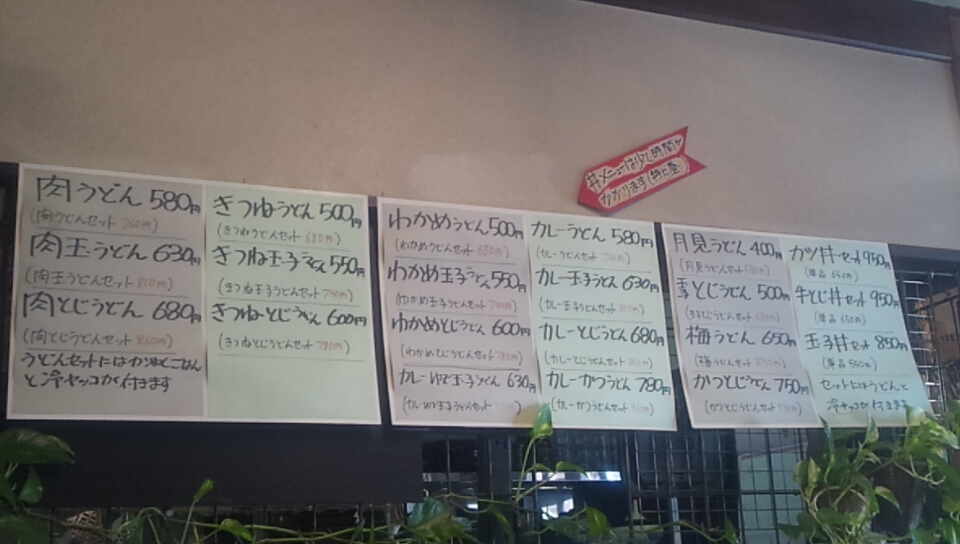 丼メニューは少し時間が
かかります(特に昼)
肉うどん 580円
(肉うどんセット 760円)
肉玉うどん 630円
(肉玉うどんセット 810円)
肉とじうどん 680円
(肉とじうどんセット 860円)
うどんセットにはかやくごはん
と冷ヤッコが付きます
きつねうどん 500円
(きつねうどんセット 680円)
きつね玉子うどん 550円
(きつね玉子うどんセット 730円)
きつねとじうどん 600円
(きつねとじうどんセット 780円)
わかめうどん 500円
(わかめうどんセット 680円)
わかめ玉子うどん 550円
(わかめ玉子うどんセット 730円)
わかめとじうどん 600円
(わかめとじうどんセット 780円)
カレーゆで玉子うどん 630円
(カレーゆで玉子うどんセット
カレーうどん 580円
(カレーうどんセット 760円)
カレー玉子うどん 630円
(カレー玉子うどんセット 810円)
カレーとじうどん 680円
(カレーとじうどんセット 860円)
カレーかつうどん 780円
(カレーかつうどんセット 960円)
月見うどん 400円
(月見うどんセット 580円)
玉子とじうどん 500円
(玉子とじうどんセット 680円)
梅うどん 650円
(梅うどんセット 830円)
かつとじうどん 750円
(かつとじうどんセット 930円)
カツ丼セット 950円
(単品 650円)
牛とじ丼セット 950円
(単品 650円)
玉子丼セット 850円
(単品 550円)
セットにはうどんと
冷ヤッコが付きます